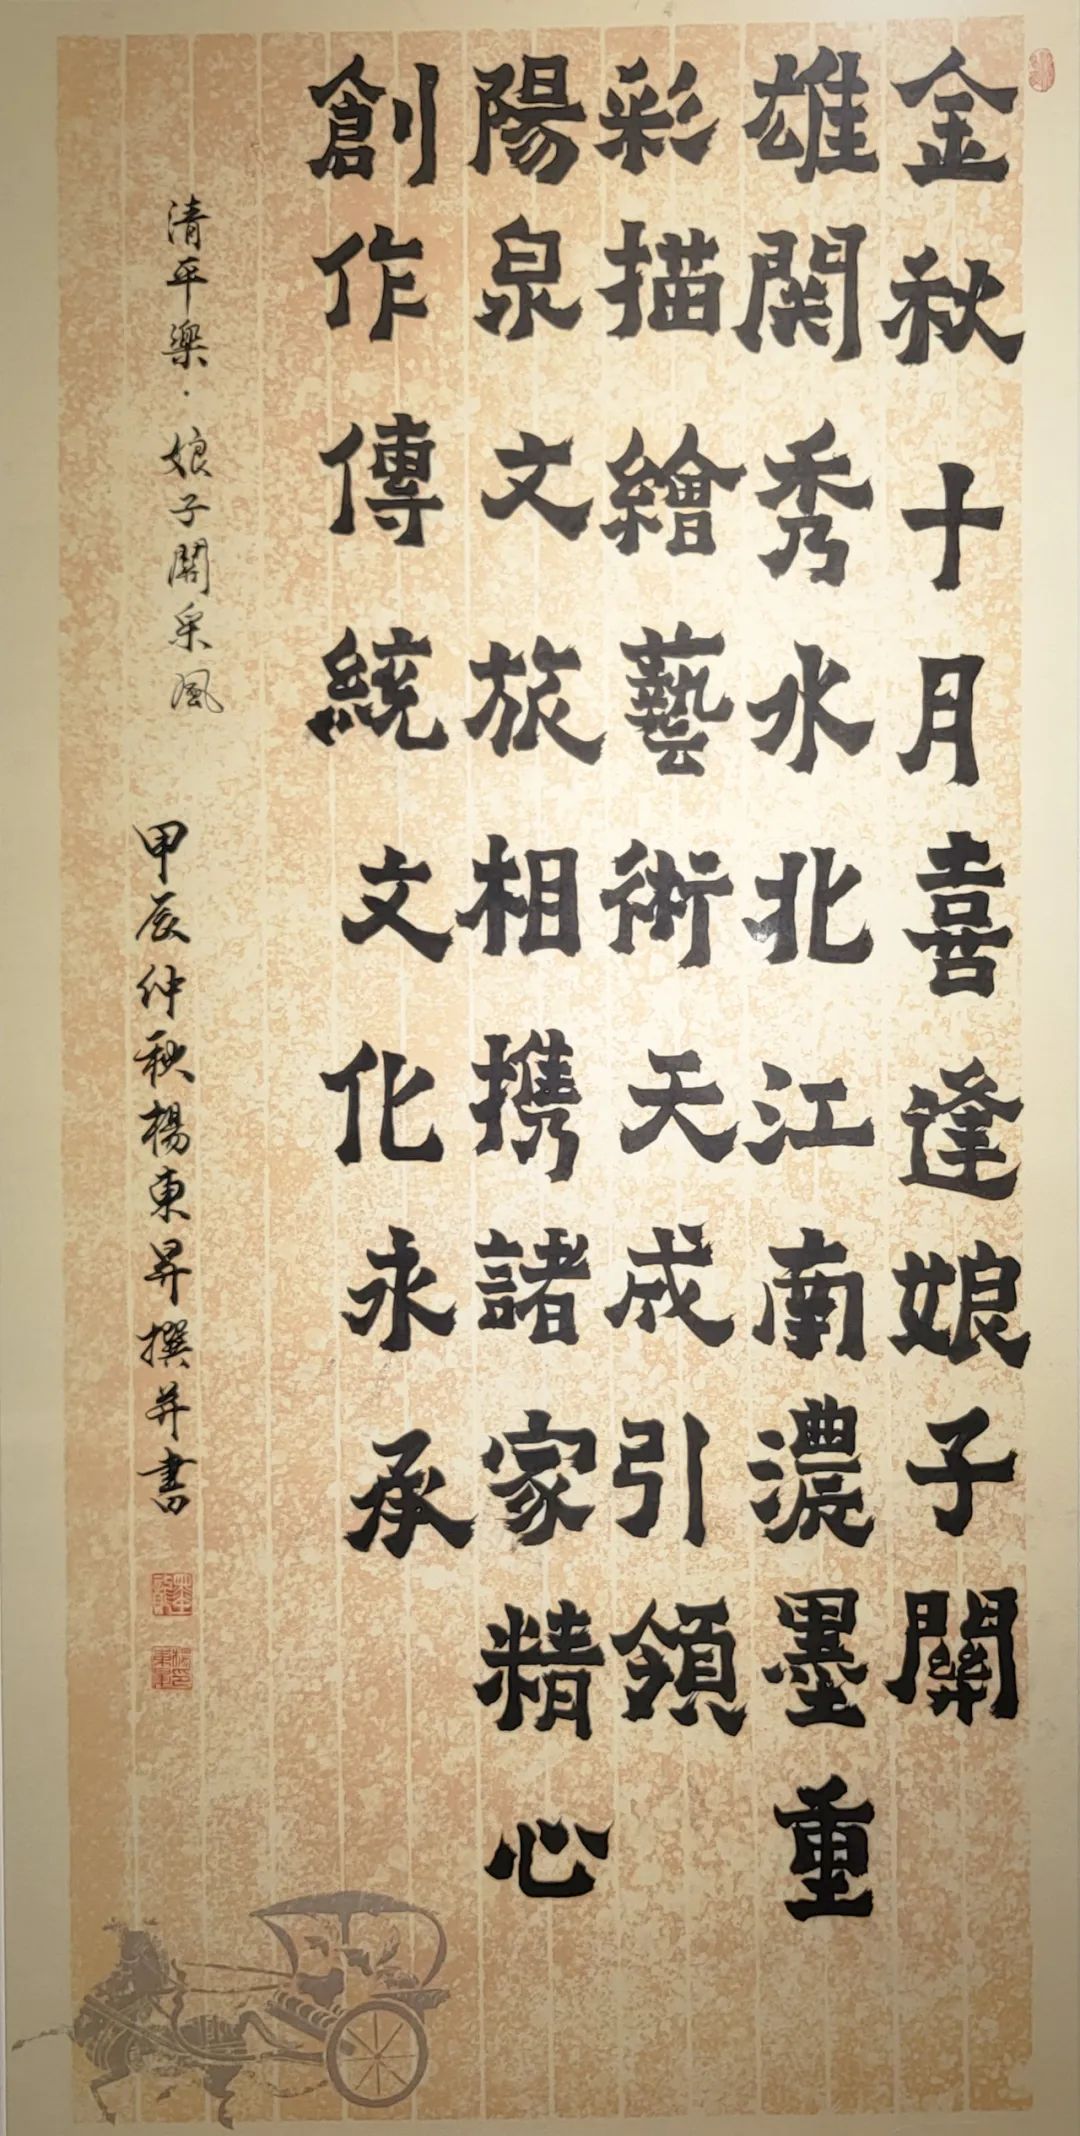 金秋十月喜逢娘子關
雄関秀水北江南濃墨重
彩描繪藝術天成引領
陽泉文旅相携諸家精心
創作傳統文化永承
清平樂·娘子關采風
甲辰仲秋楊東昇撰并書